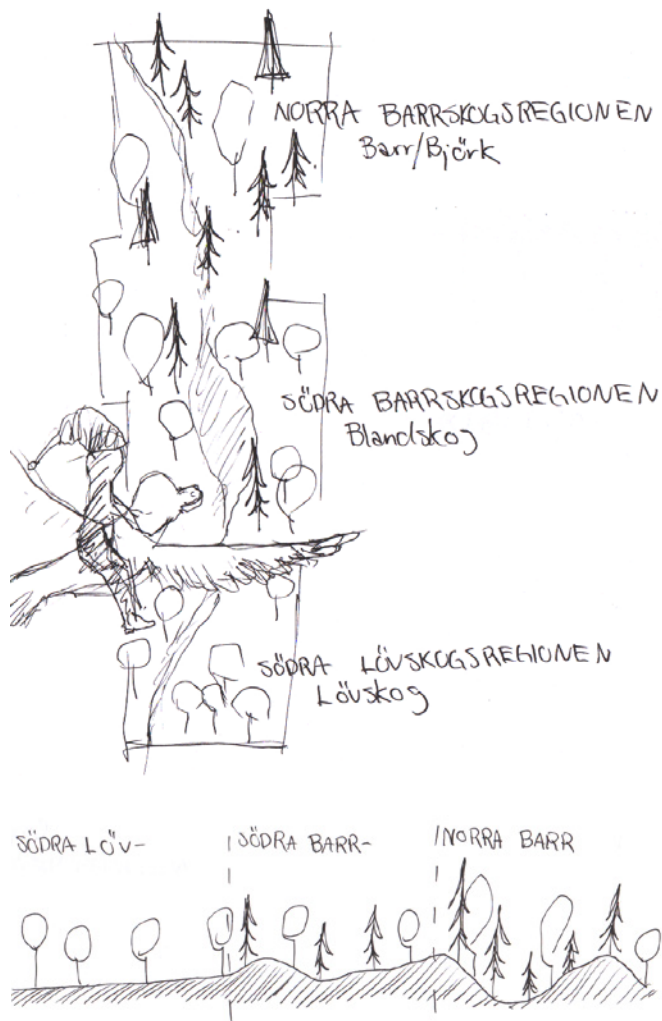 NORRA BARRSKOGSREGIONEN
Barr/Björk
SÖDRA BARRSKOGSREGIONEN
Blandskog
SÖDRA LÖVSKOGSREGIONEN
Lövskog
SÖDRA LÖV- SÖDRA BARR- NORRA BARR